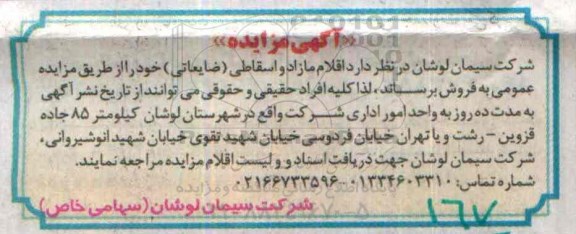 «آگهی مزایده»
شرکت سیمان لوشان در نظر دارد اقلام مازاد و اسقاطی (ضایعاتی) خود را از طریق مزایده
عمومی به فروش برساند، لذا کلیه افراد حقیقی و حقوقی می توانند از تاریخ نشر آگهی
به مدت ده روز به واحد امور اداری شرکت واقع در شهرستان لوشان کیلومتر ۸۵ جاده
قزوین - رشت و یا تهران خیابان فردوسی خیابان شهید تقوی خیابان شهید انوشیروانی،
شرکت سیمان لوشان جهت دریافت اسناد و و لیست اقلام مزایده مراجعه نمایند.
شماره تماس: ۰۱۳۳۴۶۰۳۳۱۰-۰۲۱۶۶۷۳۳۵۹۶
شرکت سیمان لوشان (سهامی خاص)
۱۶۷